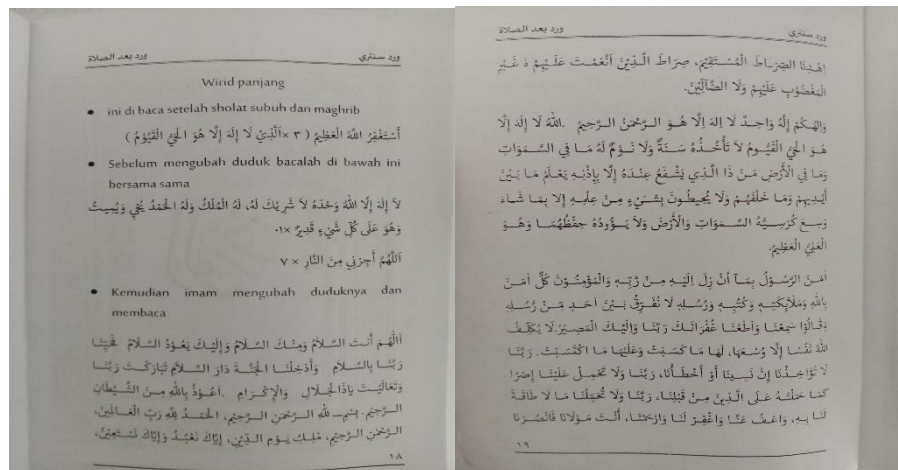 ورد سنتري ورد بعد الصلاة
Wirid panjang
• ini di baca setelah sholat subuh dan maghrib
أَسْتَغْفِرُ اللهَ الْعَظِيْمُ ( ٣ × اَلَّذِيْ لَا إِلَهَ إِلَّا هُوَ الْحَيُّ الْقَيُّوْمُ )
• Sebelum mengubah duduk bacalah di bawah ini
bersama sama
لاَ إِلَهَ إِلَّا اللهُ وَحْدَهُ لاَ شَرِيْكَ لَهُ، لَهُ الْمُلْكُ وَلَهُ الْحَمْدُ يُحْيِ وَيُمِيتُ
وَهُوَ عَلَى كُلِّ شَيْءٍ قَدِيْرٌ ×٠١
اَللّهُمَّ أَجِرْنِي مِنَ النَّارِ × ٧
• Kemudian imam mengubah duduknya dan
membaca
اَللّهُمَّ أَنْتَ السَّلاَمُ وَمِنْكَ السَّلاَمُ وَإِلَيْكَ يَعُوْدُ السَّلاَمُ فَحَيِّنَا
رَبَّنَا بِالسَّلاَمِ وَأَدْخِلْنَا الْجَنَّةَ دَارَ السَّلاَمِ تَبَارَكْتَ رَبَّنَا
وَتَعَالَيْتَ يَاذَالْجَلاَلِ وَالْإِكْرَامِ . اَعُوْذُ بِاللهِ مِنَ الشَّيْطَانِ
الرَّجِيْمِ. بِسْمِ اللهِ الرَّحْمنِ الرَّحِيْمِ، الْحَمْدُ لِلَّهِ رَبِّ الْعَالَمِيْنَ،
الرَّحْمنِ الرَّحِيْمِ، مٰلِكِ يَوْمِ الدِّيْنِ، إِيَّاكَ نَعْبُدُ وَإِيَّاكَ نَسْتَعِيْنُ،
١٨
ورد سنتري ورد بعد الصلاة
اِهْدِنَا الصِّرَاطَ الْمُسْتَقِيْمَ، صِرَاطَ الَّذِيْنَ اَنْعَمْتَ عَلَيْهِمْ ە غَيْرِ
الْمَغْضُوْبِ عَلَيْهِمْ وَلَا الضَّآلِّيْنَ.
وَإِلهُكُمْ إِلَهٌ وَاحِدٌ لَا اِلهَ إِلَّا هُوَ الرَّحْمَنُ الرَّحِيمُ . اللهُ لَا إِلَهَ إِلَّا
هُوَ الْحَيُّ الْقَيُّومُ لاَ تَأْخُذُهُ سِنَةٌ وَلَا نَوْمٌ لَهُ مَا فِي السَّمَوَاتِ
وَمَا فِي الْأَرْضِ مَنْ ذَا الَّذِي يَشْفَعُ عِنْدَهُ إِلَّا بِإِذْنِهِ يَعْلَمُ مَا بَيْنَ
أَيْدِيهِمْ وَمَا خَلْفَهُمْ وَلَا يُحِيطُونَ بِشَيْءٍ مِنْ عِلْمِهِ إِلا بِمَا شَاءَ
وَسِعَ كُرْسِيُّهُ السَّمَوَاتِ وَالْأَرْضَ وَلَا يَؤُودُهُ حِفْظُهُمَا وَهُوَ
الْعَلِيُّ الْعَظِيْمُ.
اٰمَنَ الرَّسُوْلُ بِمَآ اُنْزِلَ اِلَيْهِ مِنْ رَّبِّهِ وَالْمُؤْمِنُوْنَ كُلٌّ اٰمَنَ
بِاللهِ وَمَلَائِكَتِهِ وَكُتُبِهِ وَرُسُلِهِ لَا نُفَرِّقُ بَيْنَ اَحَدٍ مِّنْ رُّسُلِهِ
ە قَالُوْا سَمِعْنَا وَاَطَعْنَا غُفْرَانَكَ رَبَّنَا وَاِلَيْكَ الْمَصِيْرُ لَا يُكَلِّفُ
اللهُ نَفْسًا إِلَّا وُسْعَهَا، لَهَا مَا كَسَبَتْ وَعَلَيْهَا مَا اكْتَسَبَتْ. رَبَّنَا
لَا تُؤَاخِذْنَا إِنْ نَسِيْنَا أَوْ أَخْطَأْنَا، رَبَّنَا وَلَا تَحْمِلْ عَلَيْنَا إِصْرًا
كَمَا حَمَلْتَهُ عَلَى الَّذِيْنَ مِنْ قَبْلِنَا، رَبَّنَا وَلَا تُحَمِّلْنَا مَا لَا طَاقَةَ
لَنَا بِهِ، وَاعْفُ عَنَّا وَاغْفِرْ لَنَا وَارْحَمْنَا، أَنْتَ مَوْلَانَا فَانْصُرْنَا
١٩